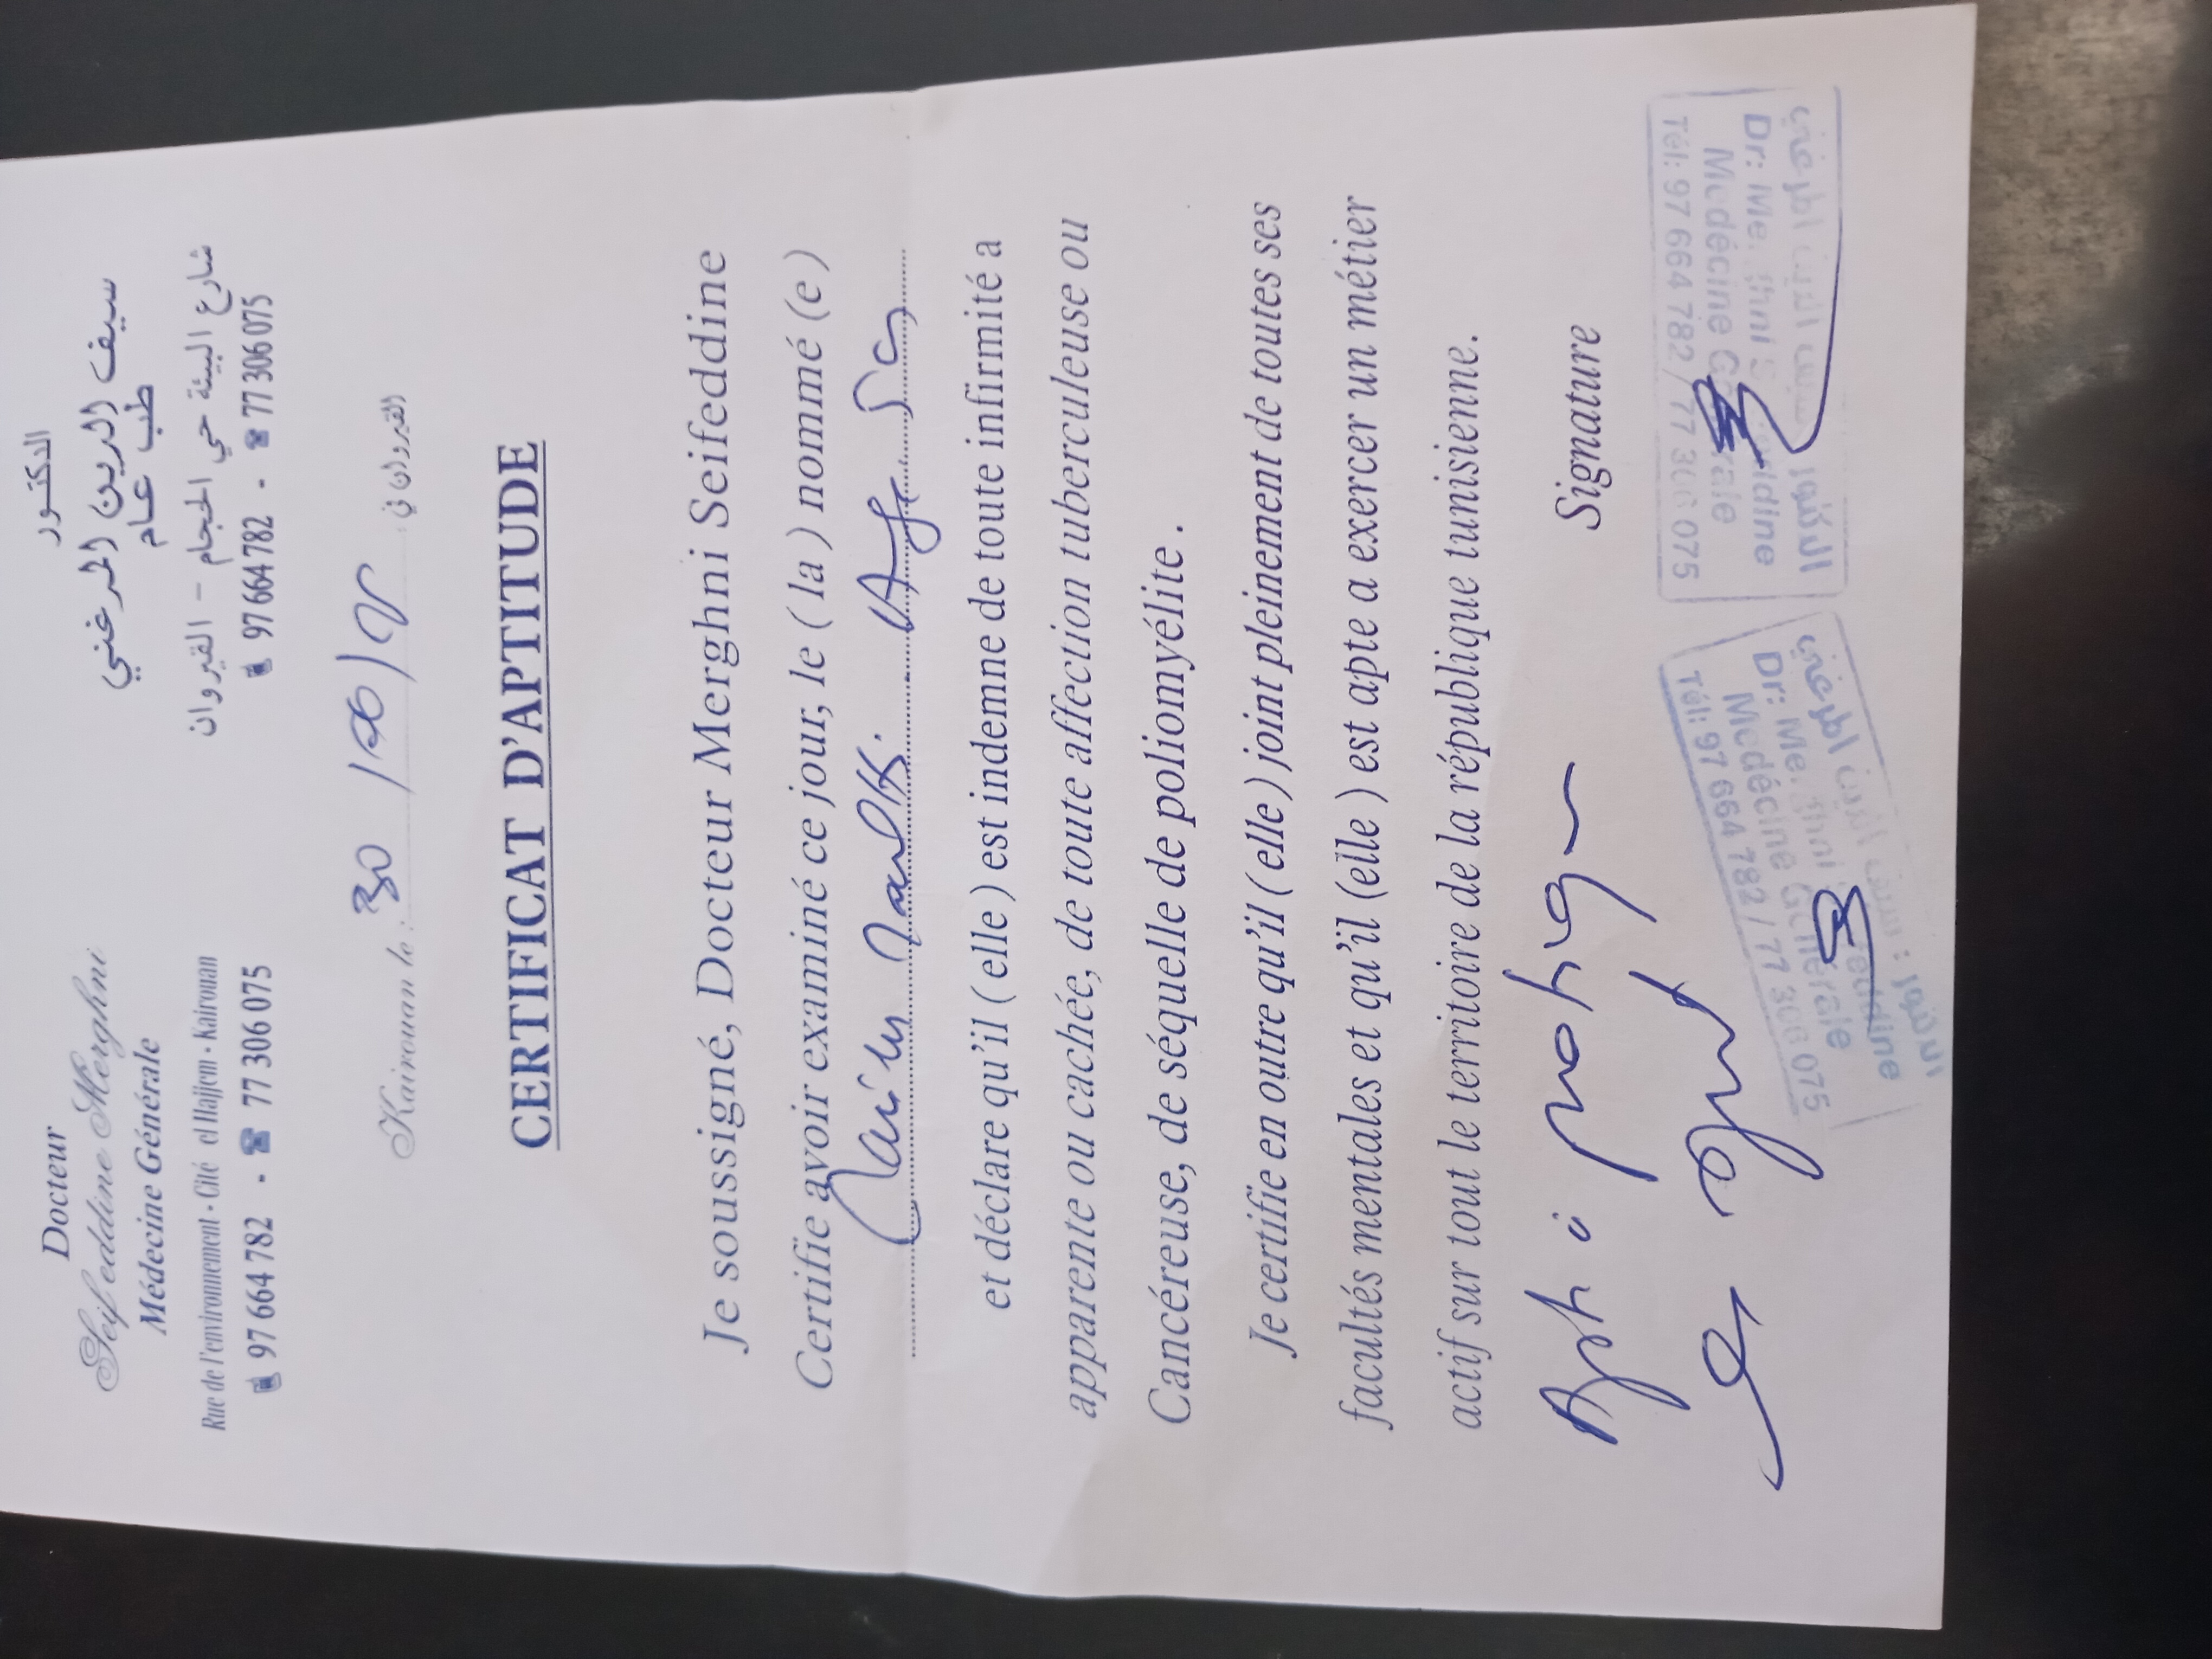 Docteur
Seifeddine Merghni
Médecine Générale
Rue de l'environnement - Cité el Hajjem - Kairouan
97 664 782 - 77 306 075
الدكتور
سيف الدين المرغني
طب عام
شارع البيئة حي الحجام - القيروان
97 664 782 - 77 306 075
Kairouan le : 30 القيروان في
CERTIFICAT D'APTITUDE
Je soussigné, Docteur Merghni Seifeddine
Certifie avoir examiné ce jour, le ( la ) nommé (e)
et déclare qu'il ( elle ) est indemne de toute infirmité a
apparente ou cachée, de toute affection tuberculeuse ou
Cancéreuse, de séquelle de poliomyélite .
Je certifie en outre qu'il ( elle ) joint pleinement de toutes ses
facultés mentales et qu'il (elle ) est apte a exercer un métier
actif sur tout le territoire de la république tunisienne.
Signature
الدكتور : سيف الدين المرغني
Dr: Me ghni S ddine
Médécine Générale
Tél: 97 664 782 / 77 306 075
الدكتور : سيف الدين المرغني
Dr: Me ghni eddine
Médécine Générale
Tél: 97 664 782 / 77 306 075